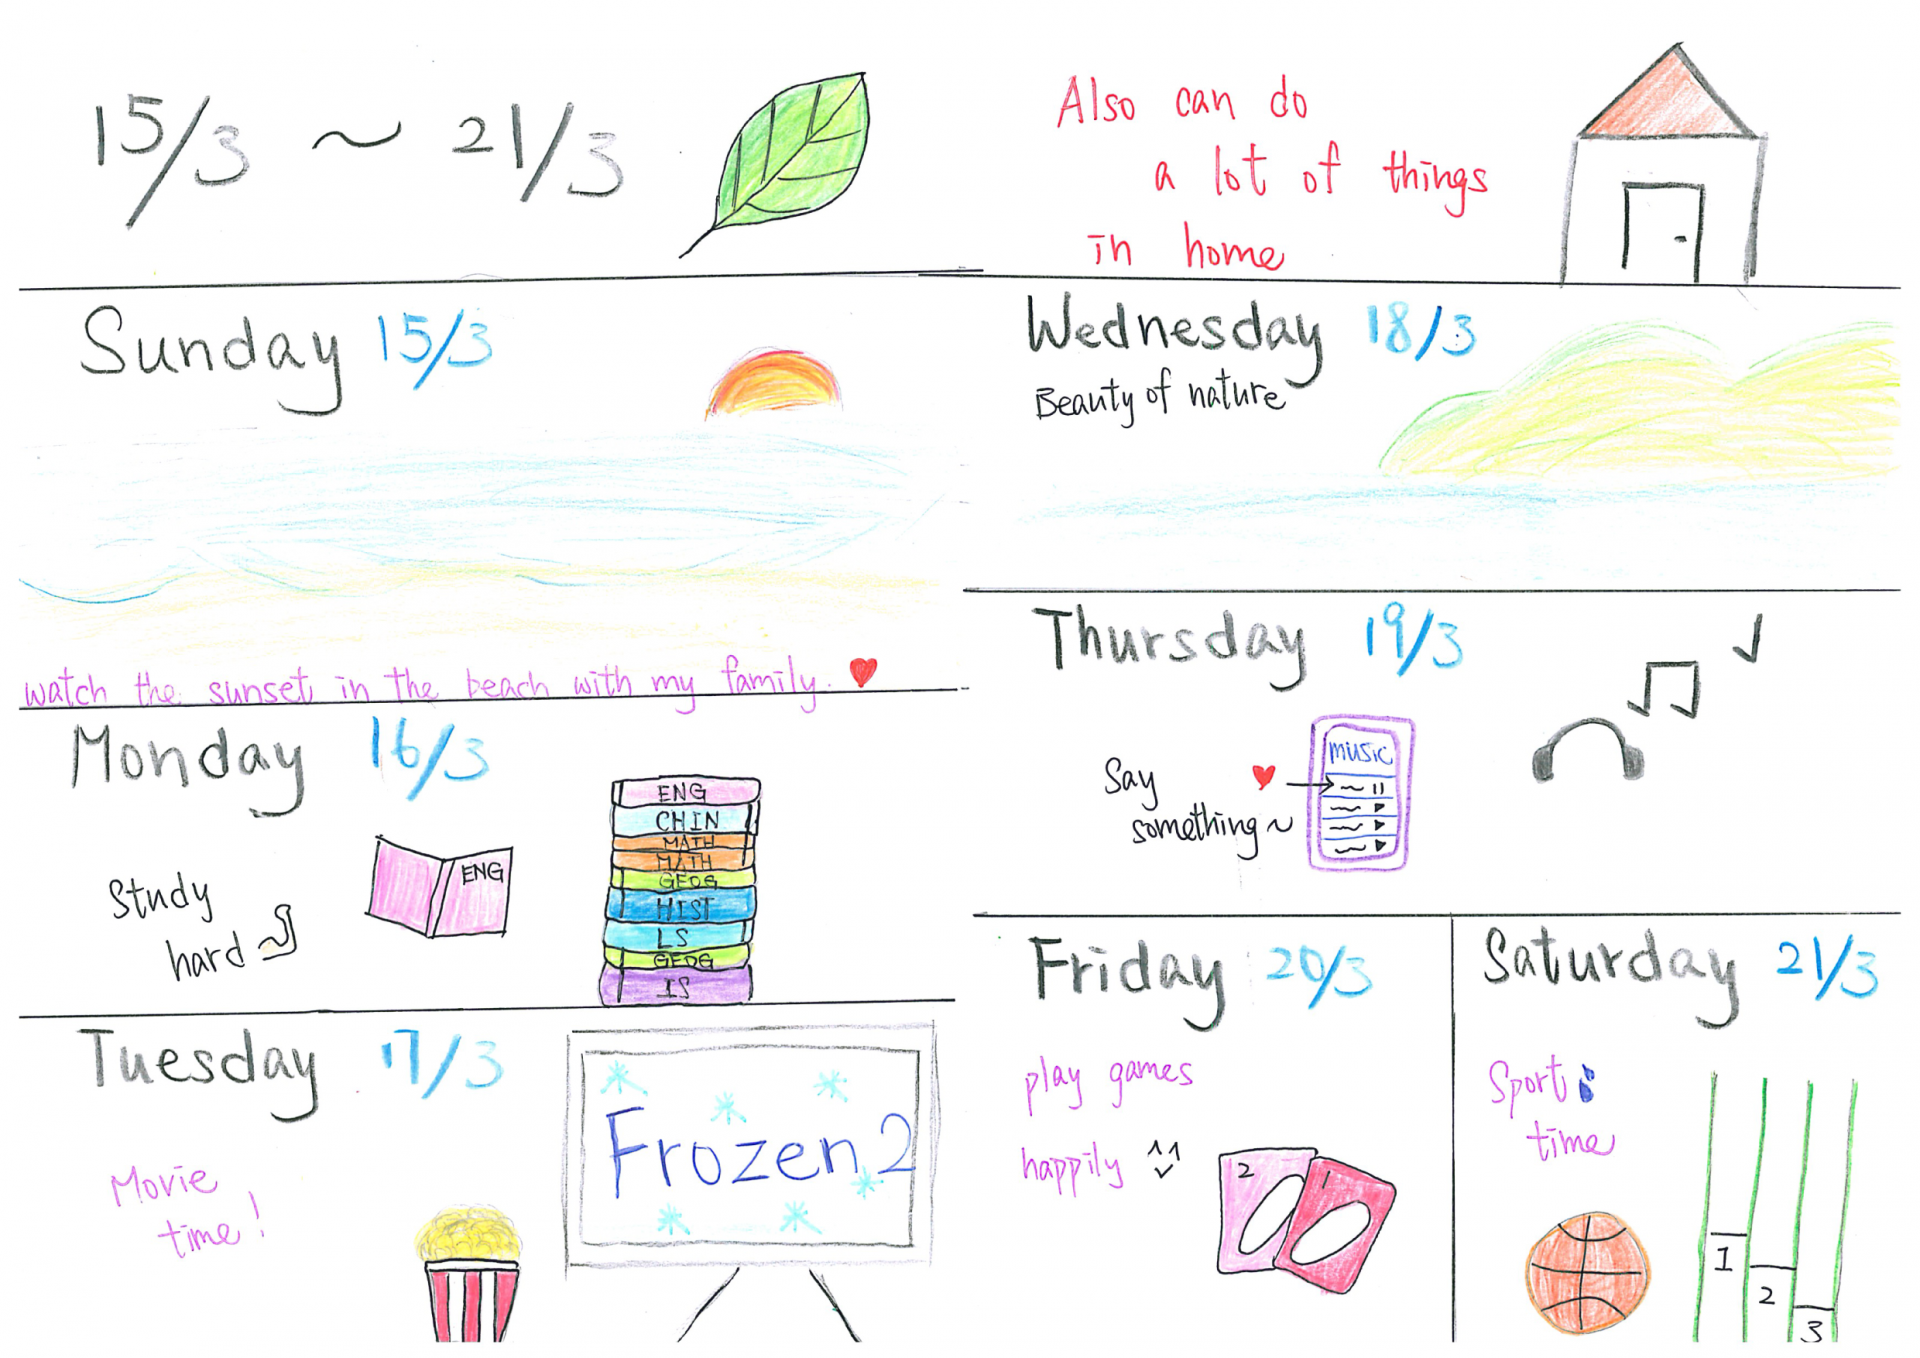 15/3 ~ 21/3
Also can do
a lot of things
in home
Sunday 15/3
watch the sunset in the beach with my family.
Monday 16/3
Study
hard
ENG
ENG
CHIN
MATH
MATH
GEOG
HIST
LS
GEOG
IS
Tuesday 17/3
Movie
time!
Frozen 2
Wednesday 18/3
Beauty of nature
Thursday 19/3
Say
something~
music
Friday 20/3
play games
happily
2
1
Saturday 21/3
Sport
time
1
2
3